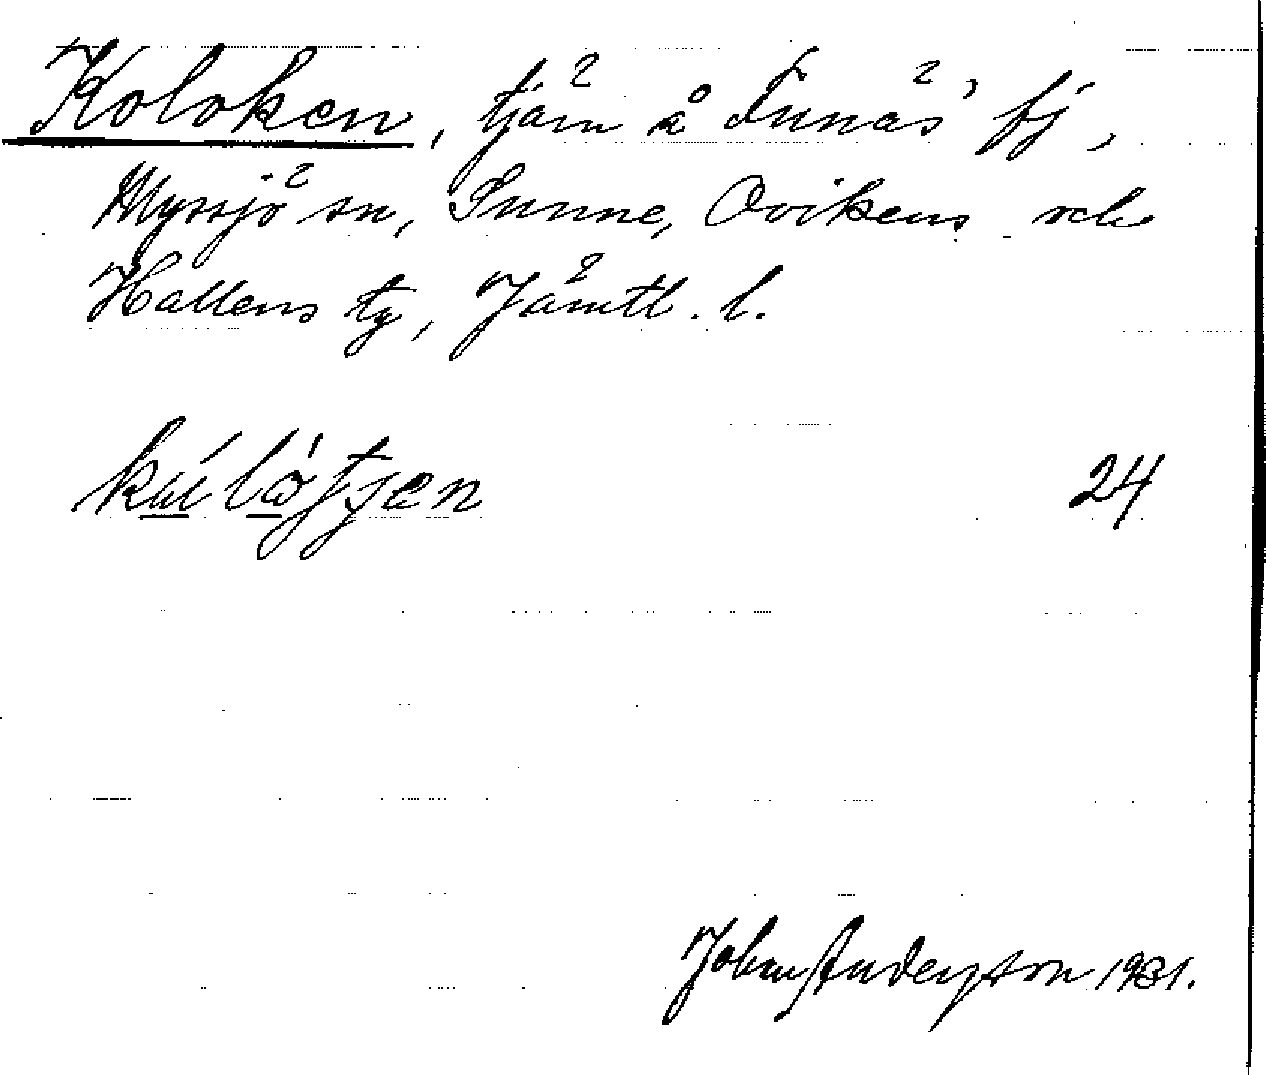 Koloken, tjärn å Funäs' fj,
Myssjö sn, Sunne, Ovikens och
Hallens tg, Jämtl. l.
24
Johan Anderson 1931.